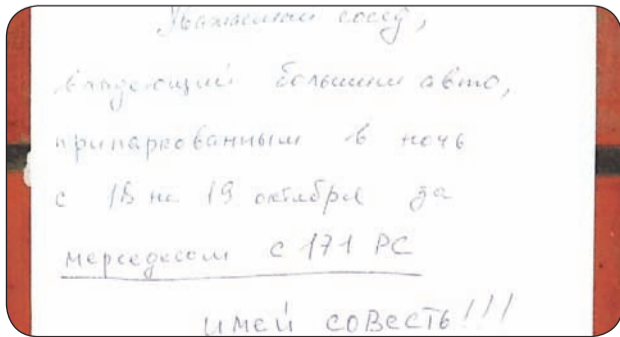 Уважаемый сосед,
владеющий большим авто,
припаркованным в ночь
с 18 на 19 октября за
мерседесом с 171 РС
имей совесть!!!